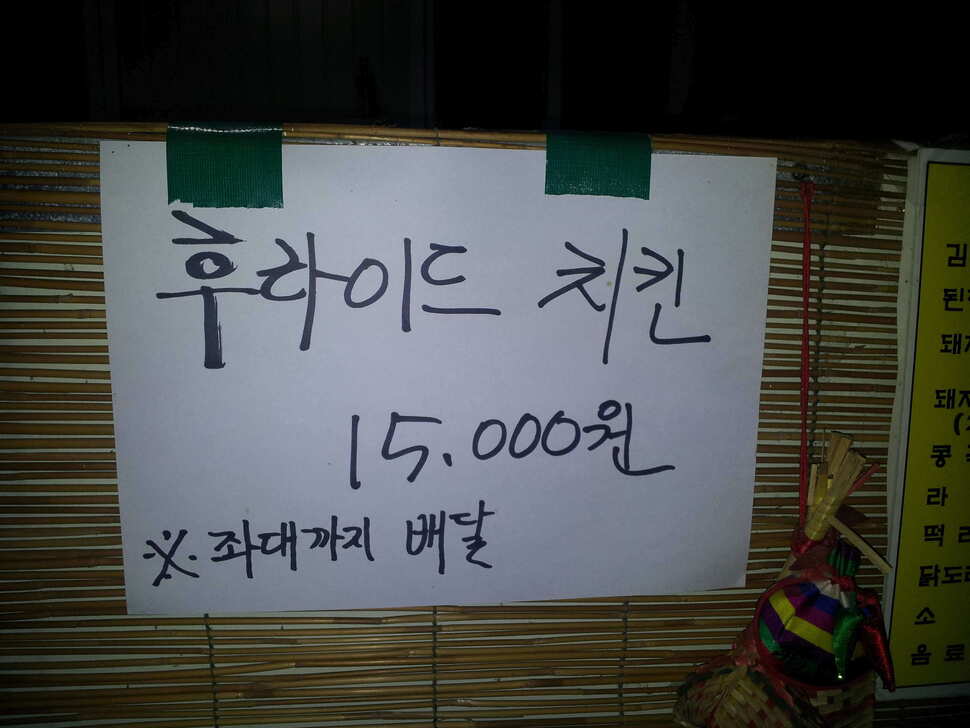 후라이드 치킨
15.000원
※. 좌대까지 배달
김
된
돼지
돼지
콩
라
떡
닭도
소
음료